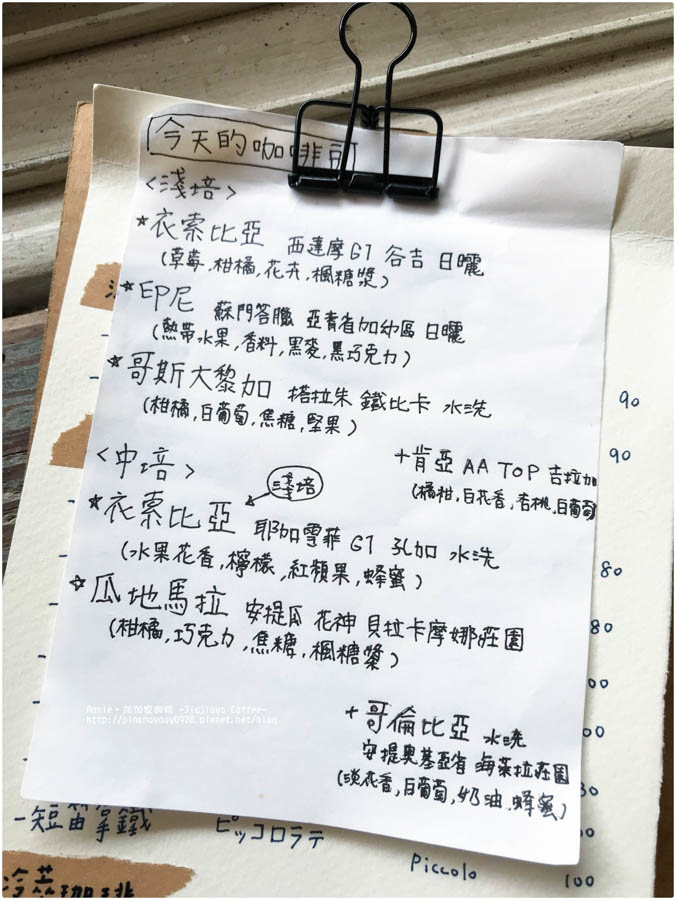 今天的咖啡豆
<淺培>
☆衣索比亞 西達摩G1 谷吉 日曬
(草莓,柑橘,花卉,楓糖漿)
☆印尼 蘇門答臘 亞齊省加幼區 日曬
(熱帶水果,香料,黑麥,黑巧克力)
☆哥斯大黎加 塔拉朱 鐵比卡 水洗
(柑橘,白葡萄,焦糖,堅果)
90
<中培>
+肯亞 AA TOP 吉拉加
90
(橘柑,白花香,杏桃,白葡萄
淺培
☆衣索比亞 耶加雪菲 G1 孔加 水洗
(水果花香,檸檬,紅蘋果,蜂蜜)
80
☆瓜地馬拉 安提瓜 花神 貝拉卡摩娜莊園
(柑橘,巧克力,焦糖,楓糖漿)
80
Annie。加加家咖啡 -Jiajiaya Coffee-
+哥倫比亞 水洗
安提奧基亞省 海萊拉莊園
(淡花香,白葡萄,奶油,蜂蜜)
短笛拿鐵 ピッコロラテ Piccolo 100